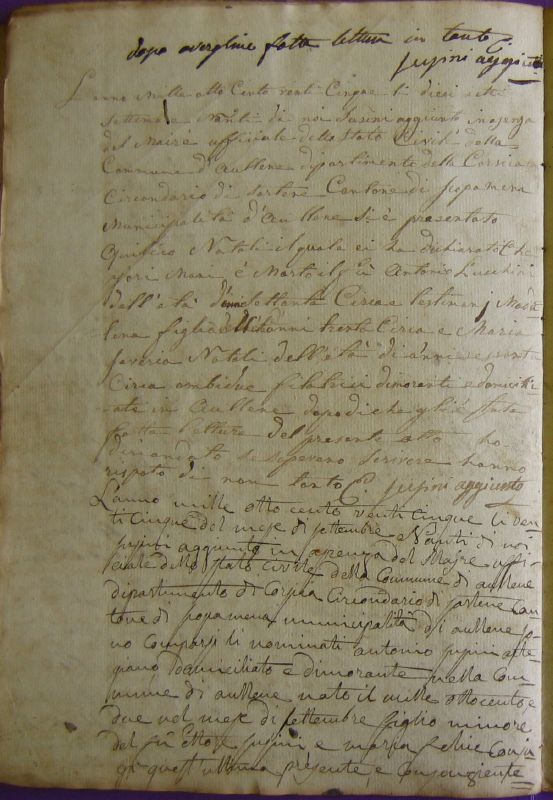 dopo avergline fatta lettura in tanto C.
susini aggiunto
L'anno mille otto Cento venti Cinque li dieci sette
settembre Nanti di noi Susini aggiunto in assenza
del Maire ufficiale dello Stato Civile della
Commune d'Aullene dipartimento della Corsica
Circondario di Sartene Cantone di Scopamena
Municipalità d'Aullene Si è presentato
Quilico Natali il quale ci ha dichiarato Che
jeri Mani è Morto il fù Antonio Lucchini
dell'età di Settanta Circa e testimonj Mada
lena figlia dell' anni trenta Circa e Maria
Saveria Natali dell'età di anni
Circa ambidue filatrici dimoranti e domicili
ate in Aullene dopodiche gli è stata
fatta lettura del presente atto ho
dimandato se sapevano scrivere hanno
risposto di non tanto C. susini aggiunto
L'anno mille otto cento venti cinque li ven
ti cinque del mese di settembre Nanti di noi
susini aggiunto in assenza del Maire uffi
ciale dello stato civile della Commune di aullene
dipartimento di Corsica Circondario di sartene Can
tone di scopamena municipalità di aullene so
no comparsi li nominati antonio susini arte
giano domiciliato e dimorante nella Com
mune di aullene nato il mille ottocento e
due nel mese di settembre figlio minore
del fù ettore susini e maria felice
quest'ultima presente, e consenziente